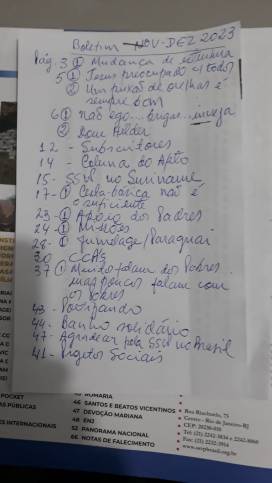 Boletim NOV-DEZ 2023
Pág. 3 ① Mudança de estrutura
5 ① Jesus preocupado c/ todos
② Um puxão de orelhas é
sempre bom
6 ① não ego... brigas... inveja
② Dom Helder
12 - Subscritores
14 - Coluna do Apito
15 - SSVP no Suriname
17 - ① Cesta-básica não é
o suficiente
23 - ① Apoio dos Padres
24 - ① Missões
28 - ① Jumelage/Paraguai
30 CCA's
37 ① Muitos falam dos Pobres
mas poucos falam com
os Pobres
43 - Poetizando
44 - Banho solidário
47 - Agradecer pela SSVP no Brasil
41 - Projetos Sociais
POCKET
AS PÚBLICAS
INTERNACIONAIS
45 ROMARIA
46 SANTOS E BEATOS VICENTINOS
47 DEVOÇÃO MARIANA
48 ENJ
52 PANORAMA NACIONAL
66 NOTAS DE FALECIMENTO
Rua Riachuelo, 75
Centro - Rio de Janeiro-RJ
CEP: 20230-010
www.ssvpbrasil.org.br